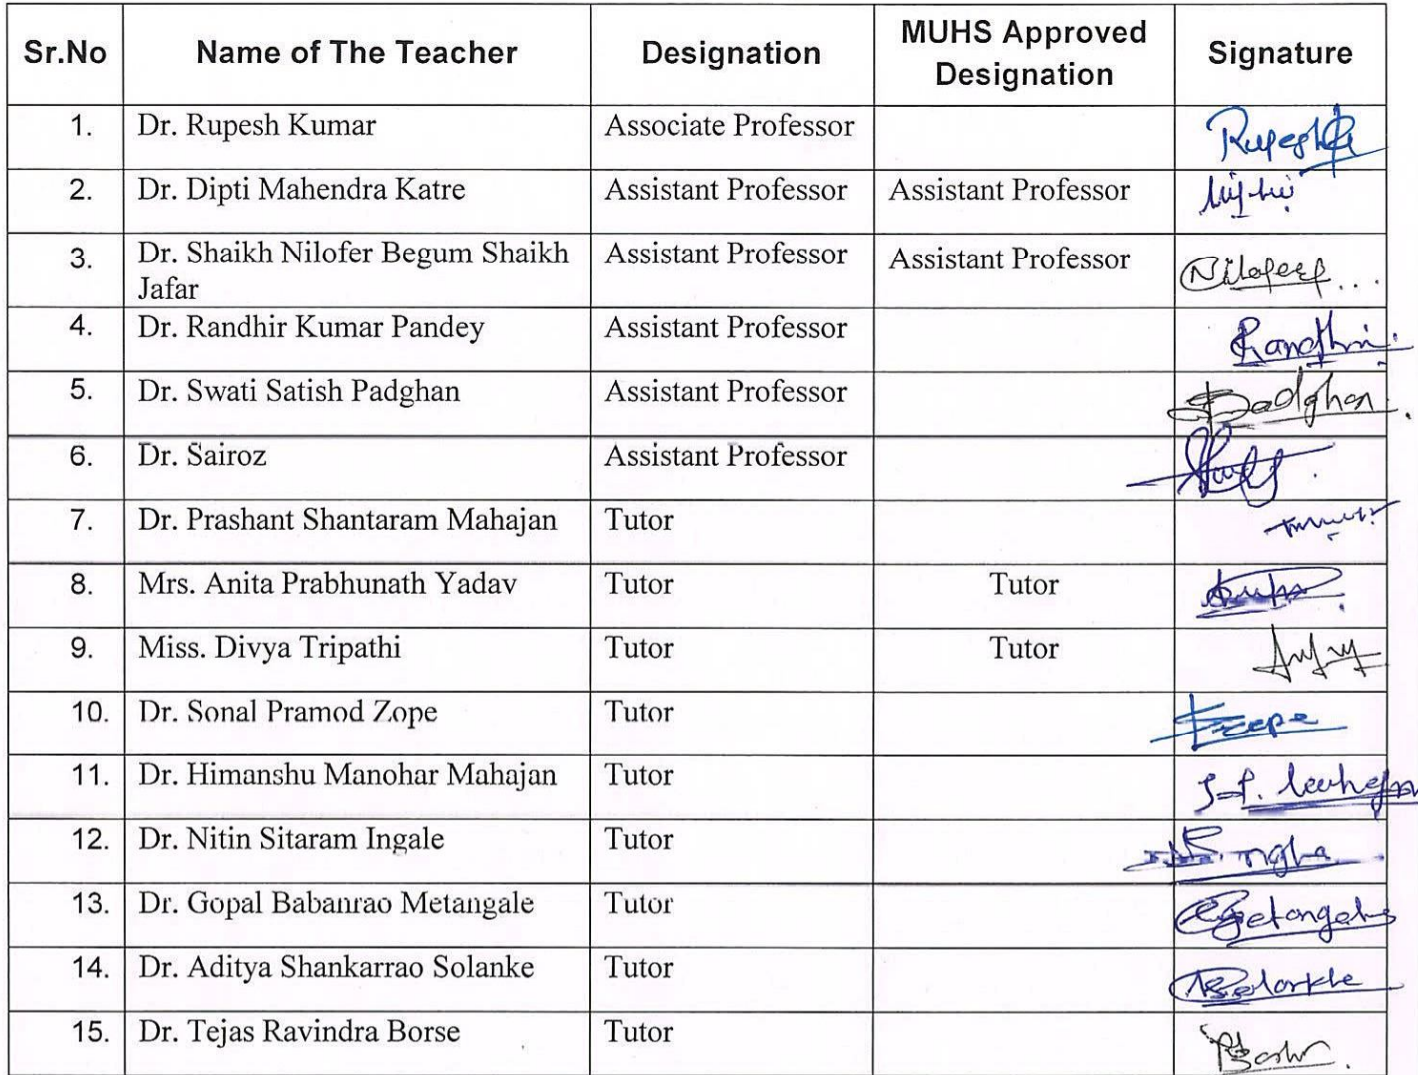 Sr.No Name of The Teacher Designation MUHS Approved Designation Signature
1. Dr. Rupesh Kumar Associate Professor Rupesh
2. Dr. Dipti Mahendra Katre Assistant Professor Assistant Professor
3. Dr. Shaikh Nilofer Begum Shaikh Jafar Assistant Professor Assistant Professor
4. Dr. Randhir Kumar Pandey Assistant Professor
5. Dr. Swati Satish Padghan Assistant Professor Padghan
6. Dr. Sairoz Assistant Professor
7. Dr. Prashant Shantaram Mahajan Tutor
8. Mrs. Anita Prabhunath Yadav Tutor Tutor
9. Miss. Divya Tripathi Tutor Tutor
10. Dr. Sonal Pramod Zope Tutor
11. Dr. Himanshu Manohar Mahajan Tutor
12. Dr. Nitin Sitaram Ingale Tutor
13. Dr. Gopal Babanrao Metangale Tutor
14. Dr. Aditya Shankarrao Solanke Tutor
15. Dr. Tejas Ravindra Borse Tutor